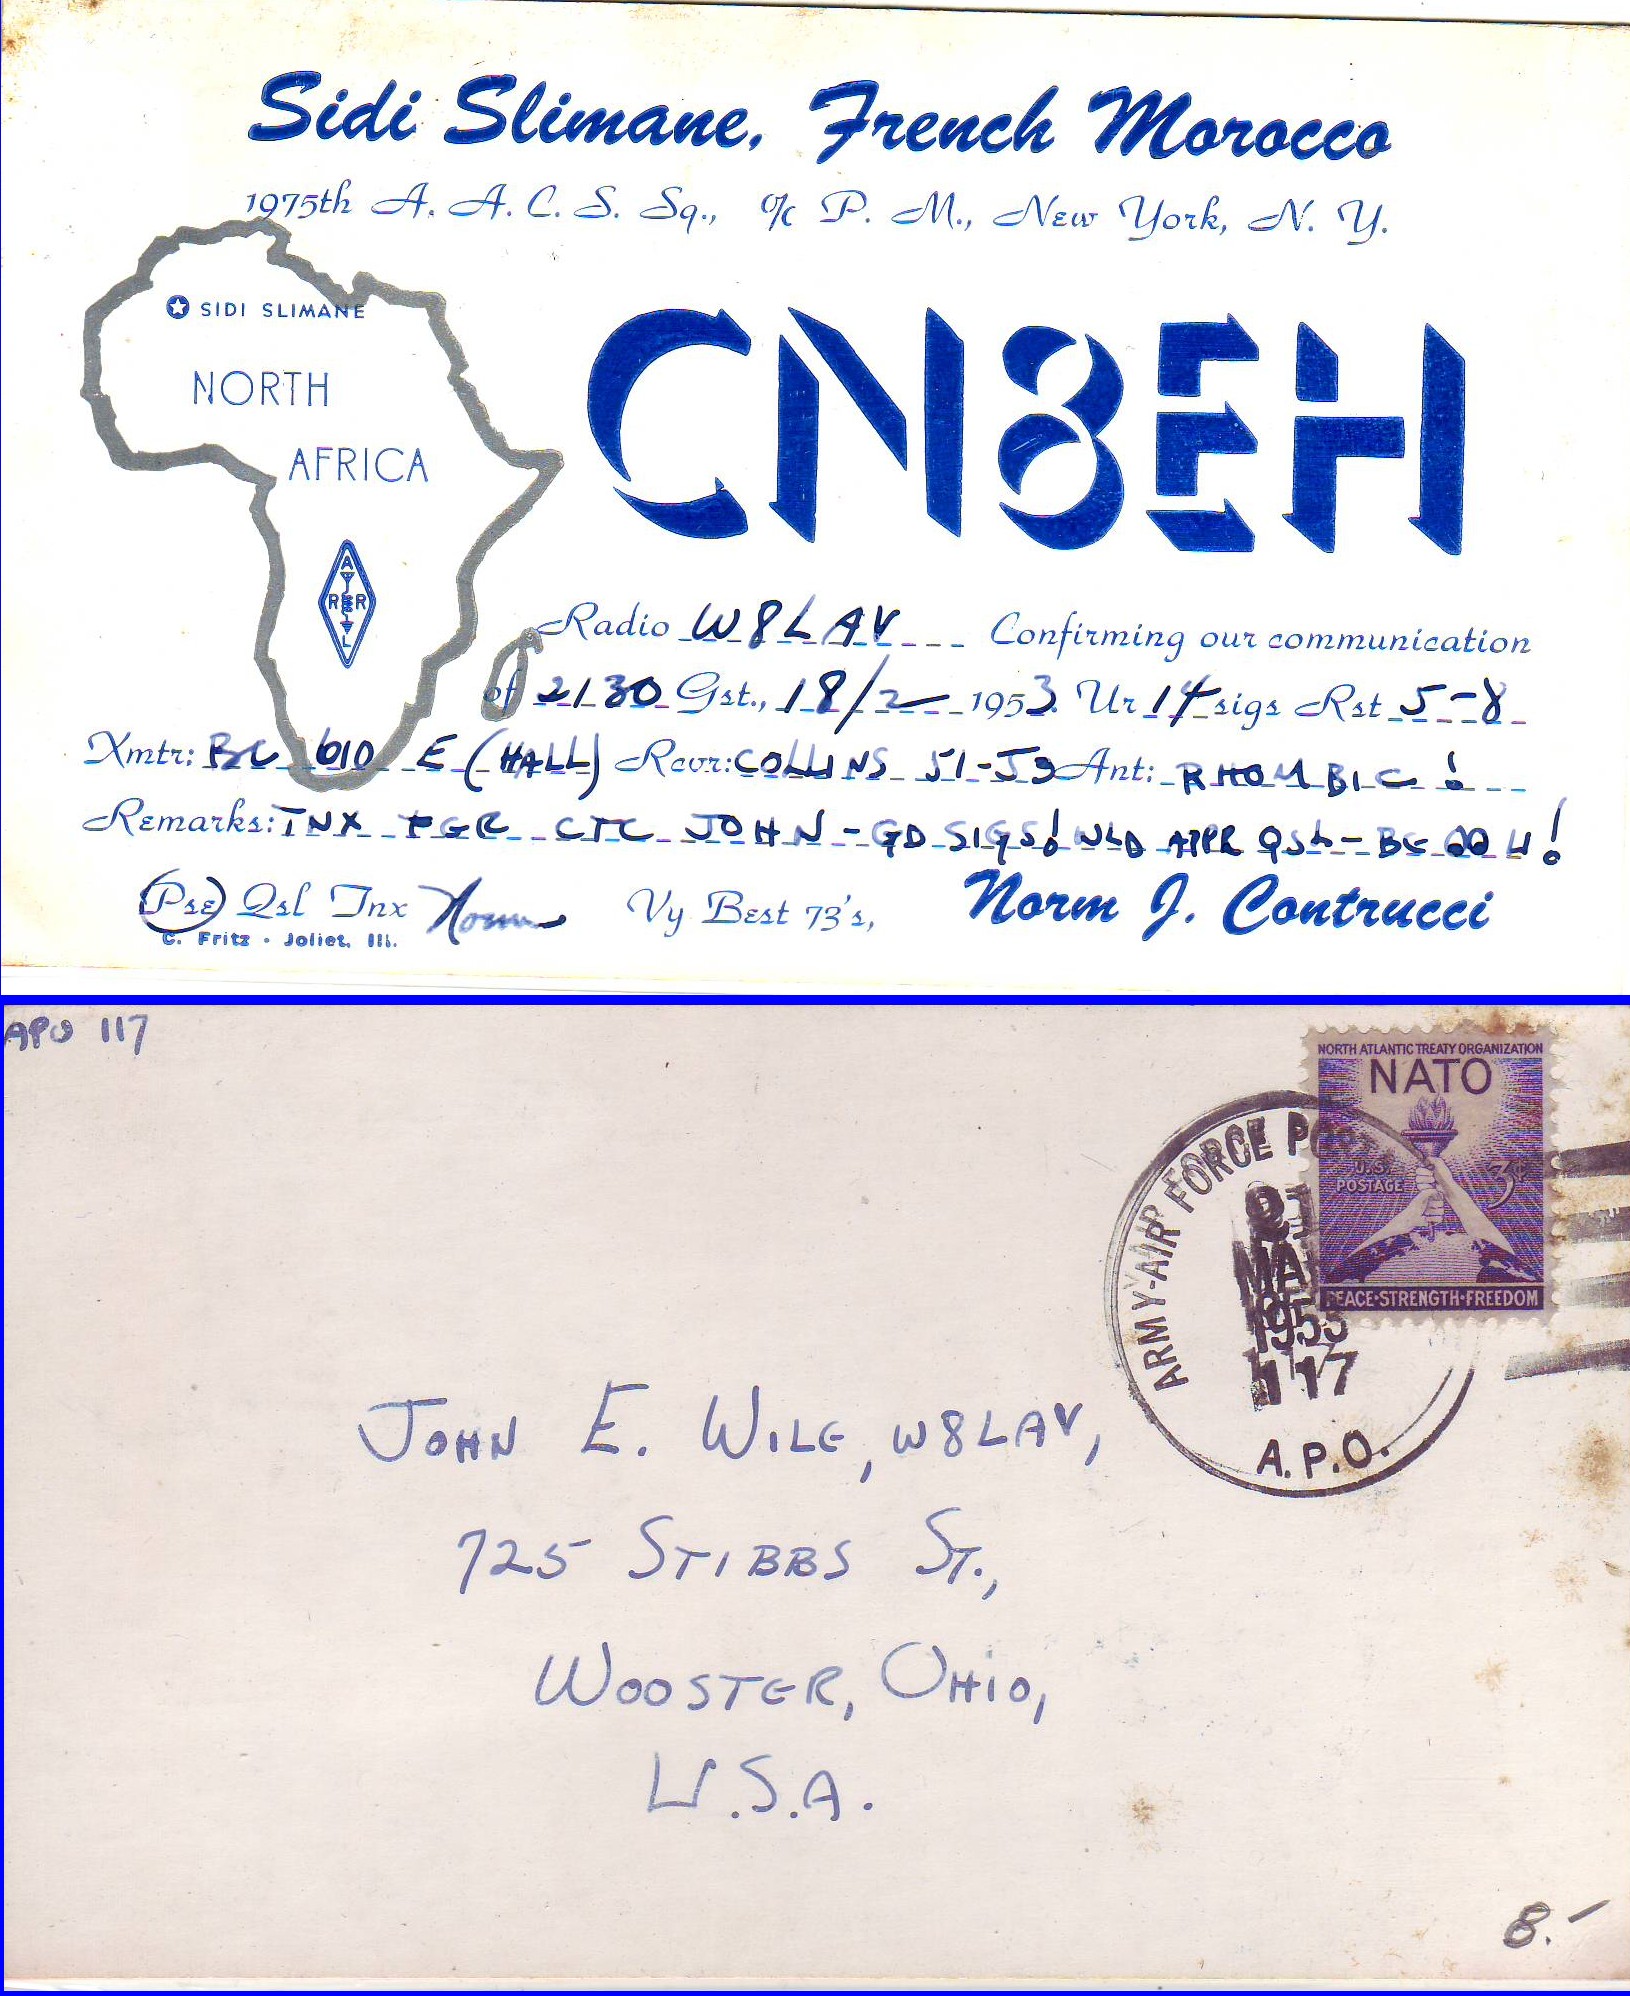 Sidi Slimane, French Morocco
1975th A. A. C. S. Sq., % P. M., New York, N. Y.
SIDI SLIMANE
NORTH
AFRICA
CN8EH
A
R R
L
Radio W8LAV Confirming our communication
of 2130 Gst., 18/2 1953 Ur 14 sigs Rst 5-8
Xmtr: BC 610 E (HALL) Rcvr: COLLINS 51-J3 Ant: RHOMBIC !
Remarks: TNX FER CTC JOHN - GD SIGS! WLD APPR QSL -
(Pse) Qsl Tnx Norm Vy Best 73's, Norm J. Contrucci
C. Fritz • Joliet, Ill.
APO 117
NORTH ATLANTIC TREATY ORGANIZATION
NATO
U.S. POSTAGE 3¢
PEACE•STRENGTH•FREEDOM
ARMY-AIR FORCE
1953
117
A.P.O.
John E. Wile, W8LAV,
725 Stibbs St.,
Wooster, Ohio,
U.S.A.
8.-